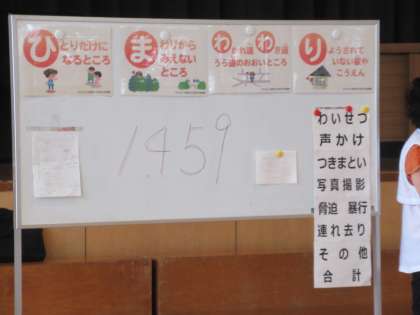 ひとりだけに
なるところ
まわりから
みえない
ところ
わかれ道
わき道
うら道のおおいところ
りようされて
いない家や
こうえん
1,459
わいせつ
声かけ
つきまとい
写真撮影
脅迫 暴行
連れ去り
その他
合計